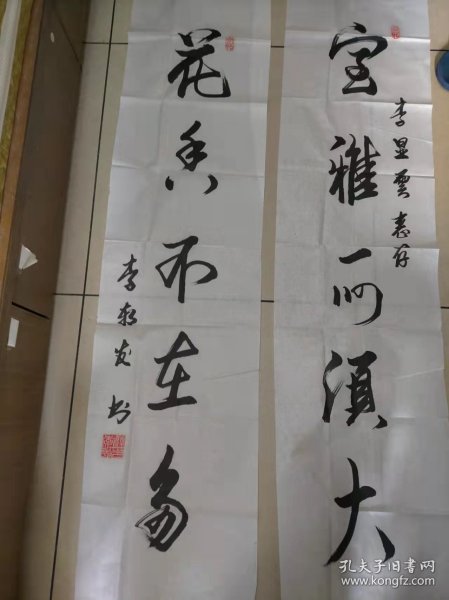 室雅何须大
李显云惠存
花香不在多
李
书
孔夫子旧书网
www.kongfz.com